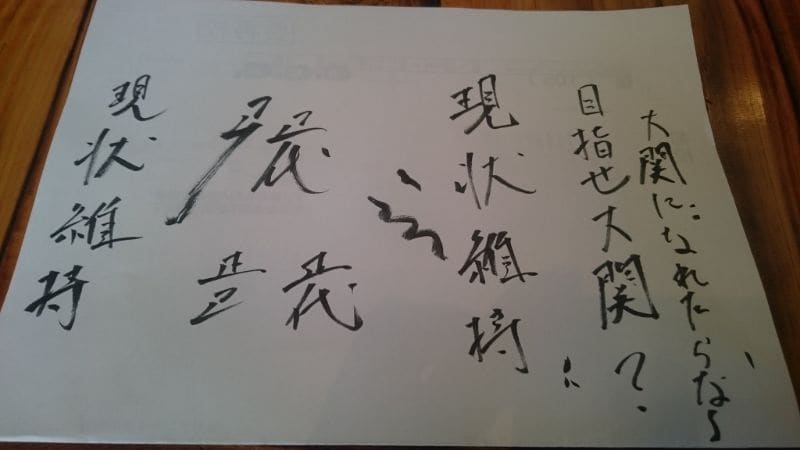 大関になれたらなら
目指せ大関？
現状維持!!
現状維持